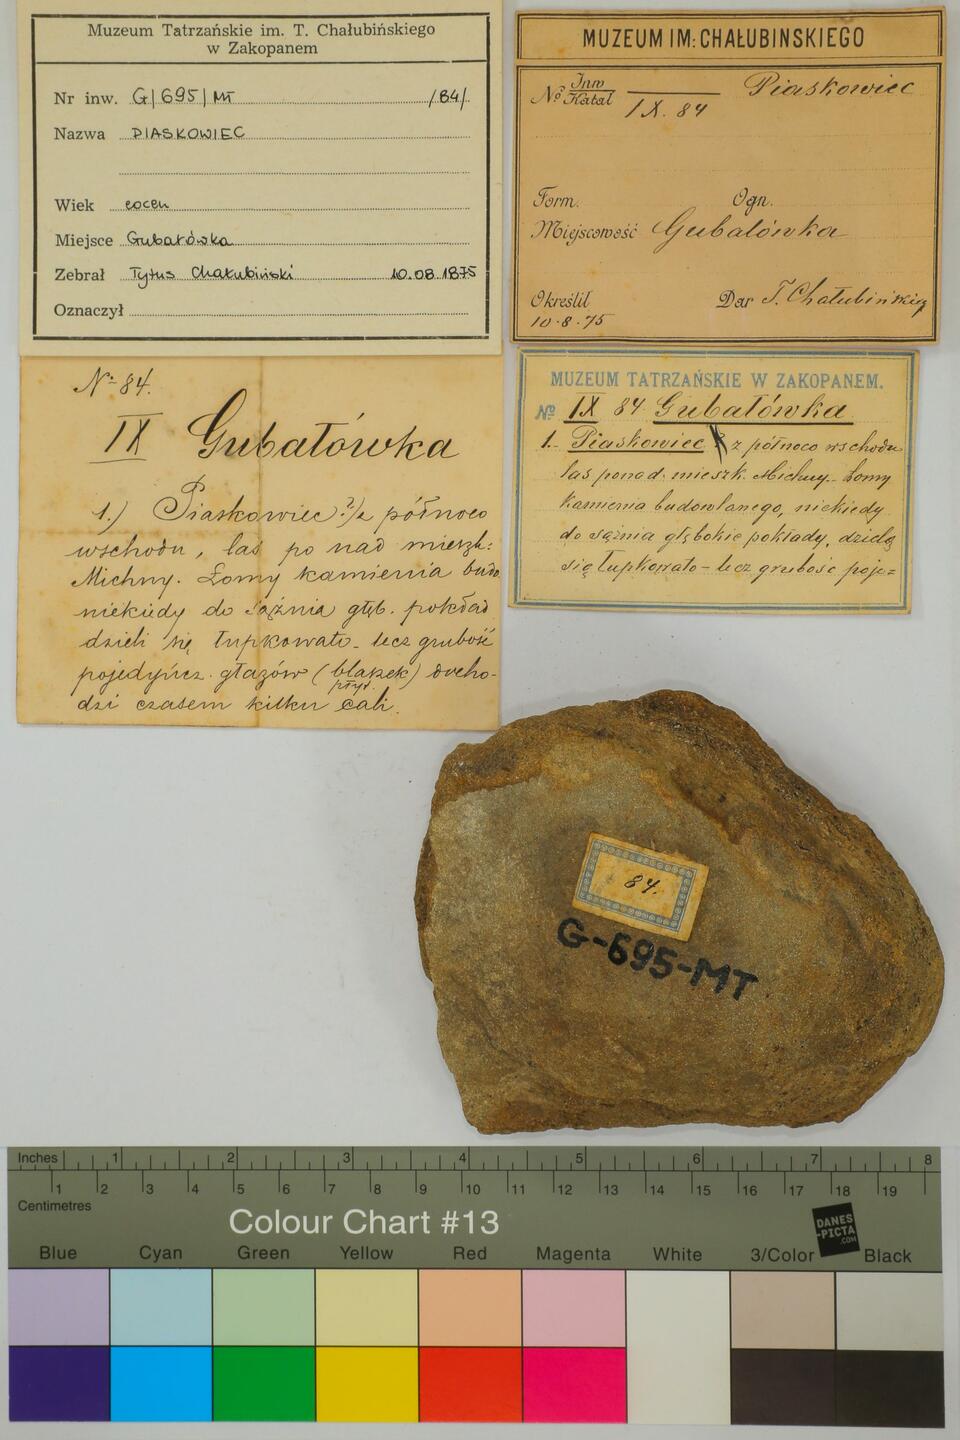 Muzeum Tatrzańskie im. T. Chałubińskiego
w Zakopanem
Nr inw. G/695/MT /84/
Nazwa PIASKOWIEC
Wiek eocen
Miejsce Gubałówka
Zebrał Tytus Chałubiński 10.08.1875
Oznaczył
MUZEUM IM: CHAŁUBINSKIEGO
No Inw Katal IX. 84 Piaskowiec
Form. Ogn.
Miejscowość Gubałówka
Określił Dar T. Chałubińskieg
10.8.75
No 84.
IX Gubałówka
1.) Piaskowiec ?) z północo
wschodu, las po nad mieszk:
Michny. Łomy kamienia budo
niekiedy do sążnia głęb. pokład
dzieli się łupkowato - lecz grubość
pojedyńcz. głazów (blaszek) docho-
płyt.
dzi czasem kilku cali.
MUZEUM TATRZAŃSKIE W ZAKOPANEM.
No IX 84. Gubałówka
1. Piaskowiec ? z północo wschodu
las ponad. mieszk. Michny. Łomy
kamienia budowlanego, niekiedy
do sążnia głębokie pokłady, dzielą
się łupkowato - lecz grubość poje=
84.
G-695-MT
Inches 1 2 3 4 5 6 7 8
1 2 3 4 5 6 7 8 9 10 11 12 13 14 15 16 17 18 19
Centimetres
Colour Chart #13
DANES
-PICTA
.COM
Blue Cyan Green Yellow Red Magenta White 3/Color Black